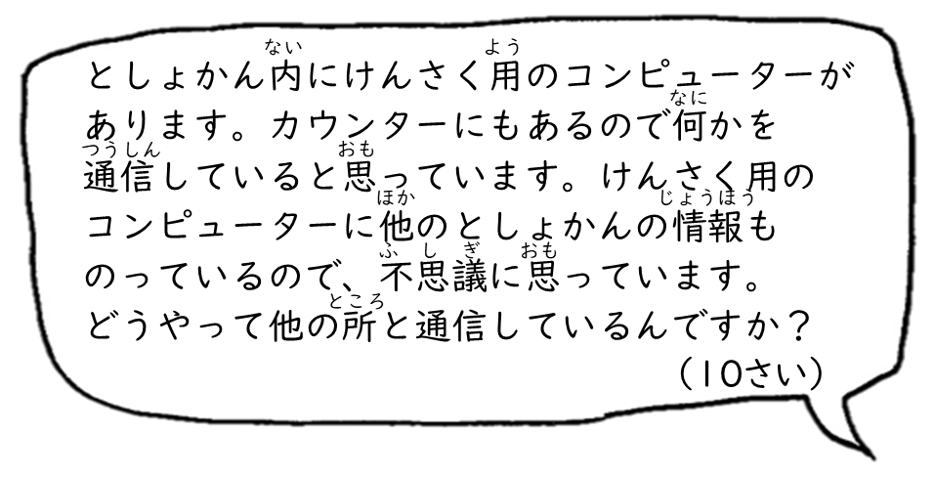 としょかん内にけんさく用のコンピューターが
あります。カウンターにもあるので何かを
通信していると思っています。けんさく用の
コンピューターに他のとしょかんの情報も
のっているので、不思議に思っています。
どうやって他の所と通信しているんですか？
（10さい）